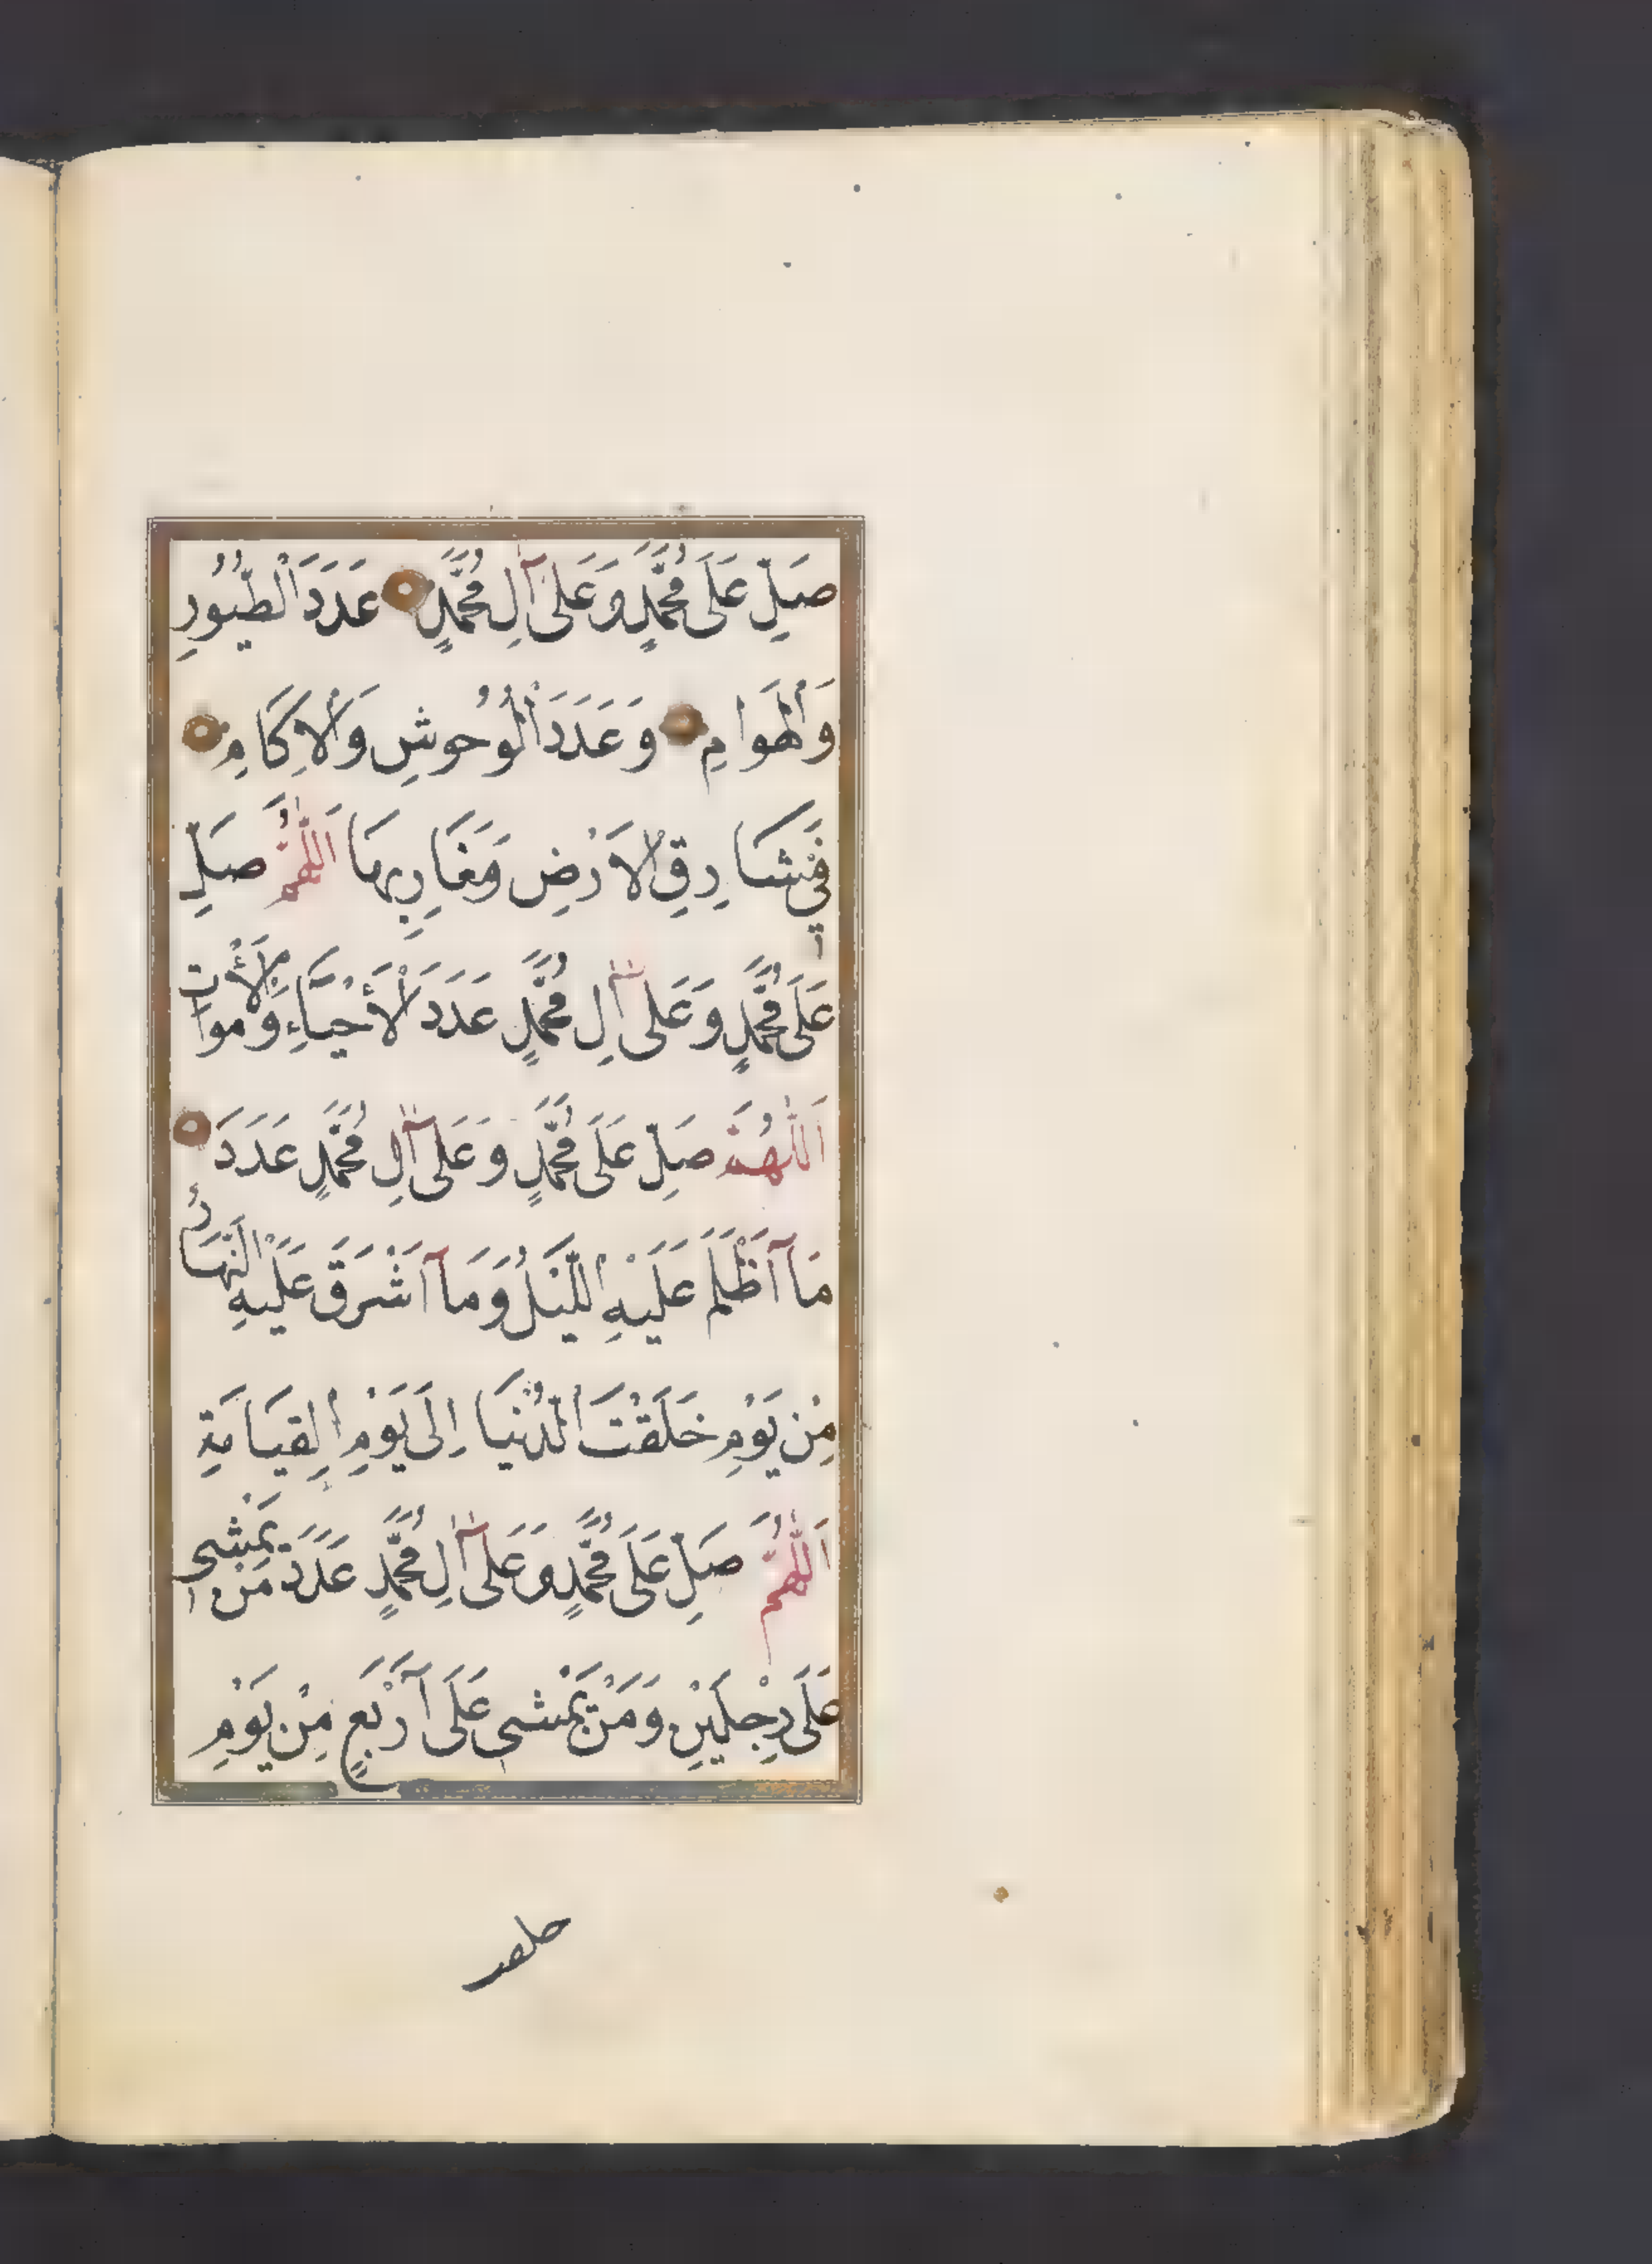 صَلِّ عَلَى مُحَمَّدٍ وَعَلَى آلِ مُحَمَّدٍ عَدَدَ الْطُّيُورِ
وَالْهَوَامِ وَعَدَدَ الْوُحُوشِ وَالْاَكَامِ
فِي مَشَارِقِ الْاَرْضِ وَمَغَارِبِهَا اَللّٰهُمَّ صَلِّ
عَلَى مُحَمَّدٍ وَعَلَى آلِ مُحَمَّدٍ عَدَدَ الْأَحْيَاءِ وَالْأَمْوَاتِ
اَللّٰهُمَّ صَلِّ عَلَى مُحَمَّدٍ وَعَلَى آلِ مُحَمَّدٍ عَدَدَ
مَآ اَظْلَمَ عَلَيْهِ الْلَّيْلُ وَمَآ اَشْرَقَ عَلَيْهِ الْنَّهَارُ
مِنْ يَوْمِ خَلَقْتَ الْدُّنْيَا اِلَى يَوْمِ الْقِيَامَةِ
اَللّٰهُمَّ صَلِّ عَلَى مُحَمَّدٍ وَعَلَى آلِ مُحَمَّدٍ عَدَدَ مَنْ يَمْشِى
عَلَى رِجْلَيْنِ وَمَنْ يَمْشِى عَلَى اَرْبَعٍ مِنْ يَوْمِ
خلقت